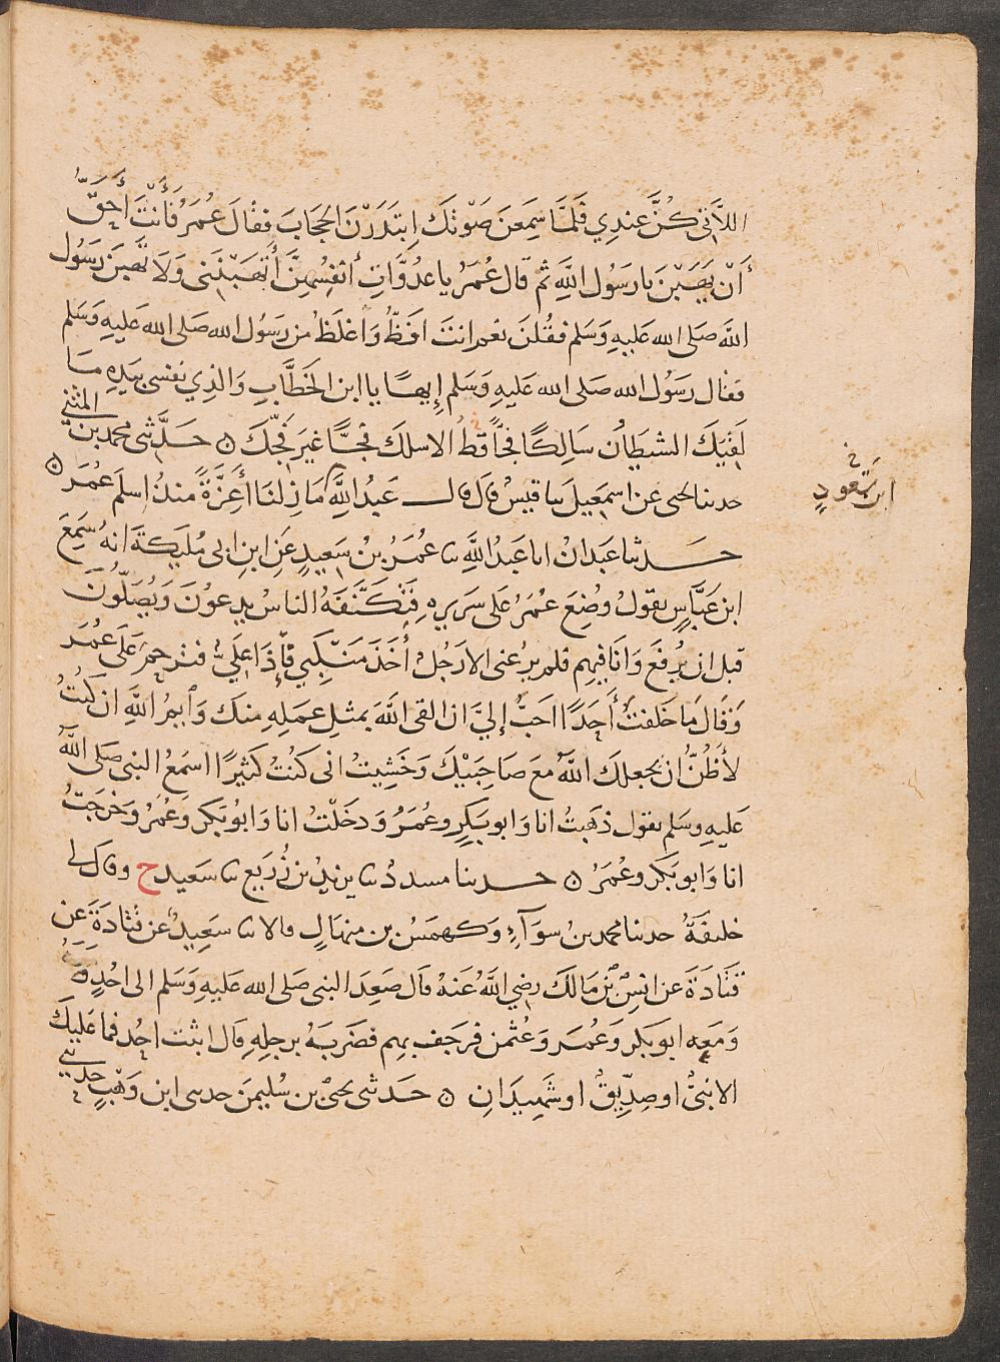 اللَّاتِي كُنَّ عِندِي فَلَمَّا سَمِعْنَ صَوْتَكَ ابْتَدَرْنَ الحِجَابَ فقالَ عُمَرُ فَأَنْتَ أَحَقُّ
أَنْ يَهَبْنَ يَا رَسُولَ اللَّهِ ثُمَّ قَالَ عُمَرُ يَا عَدُوَّاتِ أَنفُسِهِنَّ أَتَهَبْنَنِي وَلَا تَهَبْنَ رَسُولَ
اللَّهِ صَلى الله عَليهِ وَسَلم فقُلنَ نعم انتَ افَظُّ وَأَغْلَظُ من رَسُول الله صَلى الله عَليهِ وَسَلم
فقال رَسُول الله صَلى الله عَليهِ وَسَلم إِيهًا يا ابن الخَطَّابِ وَالذِي نفسي بيَدِهِ مَا
لَقِيَكَ الشيطَانُ سَالِكًا فَجًّا قَطُّ الا سلكَ فجًّا غيرَ فَجِّكَ ۞ حَدَّثني محمد بن المثنى
حدثنا يحيى عن اسمَعِيلَ ثنا قيسٌ قال قال عَبدُ اللَّهِ مَا زِلنَا أَعِزَّةً منذُ اسلَم عُمَرُ ۞
ابن مَسعُودٍ
حَدثنا عَبدَانُ انا عَبدُ اللَّهِ ثنا عُمَرُ بْنُ سَعِيدٍ عَنِ ابنِ ابي مُلَيكَةَ انهُ سَمِعَ
ابن عَبَّاسٍ يقولُ وُضِعَ عُمَرُ عَلى سَرِيرِهِ فَتَكَنَّفَهُ الناسُ يدعوُنَ وَيُصَلُّونَ
قبل ان يُرفَعَ وَانَا فِيهِم فلم يرُعني الا رَجُلٌ أَخَذَ مَنكِبِي فَإِذَا عَلِيٌّ فتَرحمَ عَلَى عُمَرَ
وَقَالَ مَا خَلفتَ أَحَدًا احَبَّ إِليَّ ان القى اللَّهَ بمثلِ عَمَلِهِ منكَ وَأيمُ اللَّهِ ان كُنتُ
لأَظُنُّ ان يجعلكَ اللَّهُ معَ صَاحِبَيْكَ وَحَسِبتُ اني كنتُ كثيرًا اسمَعُ النبي صَلى اللَّهُ
عَليهِ وسَلم يقول ذَهَبتُ انا وَابو بَكرٍ وعُمَرُ وَدخَلْتُ انا وَابوُ بَكر وَعُمَرُ وَخَرَجتُ
انا وَابو بَكر وعُمَرُ ۞ حدثنا مسددٌ ثنا يزيدُ بن زُرَيع ثنا سَعيد ح وقال لي
خليفَةُ حدثنا محمد بنُ سوَآءٍ وَكهمَسُ بن منهَالٍ قالا ثنا سَعِيدٌ عن قَتَادَةَ عن
قَتَادَةَ عن انسِ بْنِ مَالكَ رضي اللَّهُ عَنهُ قالَ صَعِدَ النبي صَلى الله عَليهِ وَسَلم الى احُدٍ
وَمَعَه ابو بَكر وَعُمَر وَعُثمٰن فرَجَف بهِم فضَرَبَهُ برِجلِهِ قالَ اثبُت احُد فما عَليكَ
الا نبيٌّ او صِدِّيقٌ او شَهِيدَانِ ۞ حَدثنى يحيَى بن سُليمَنَ حدثني ابن وَهْبٍ حدثني